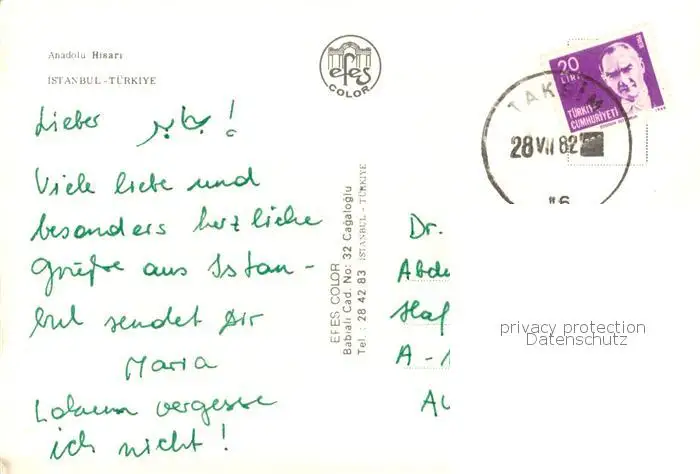 Anadolu Hisarı
İSTANBUL - TÜRKİYE
efes
COLOR
20
LİRA
TÜRKİYE
CUMHURİYETİ
TAKSİM
28 VII 82
Lieber !
Viele liebe und
besonders herzliche
Grüße aus Istan -
bul sendet Dir
Maria
vergesse
ich nicht !
EFES COLOR
Babıali Cad. No: 32 Cağaloğlu
Tel. : 28 42 83 İSTANBUL - TÜRKİYE
Dr.
Abdu
Haf
A - 1
privacy protection
Datenschutz